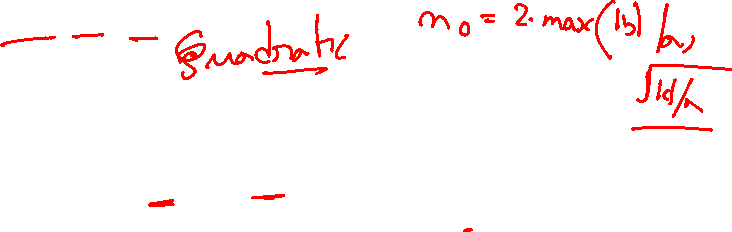 Quadratic n₀ = 2·max(|b|/a,
√|c|/a